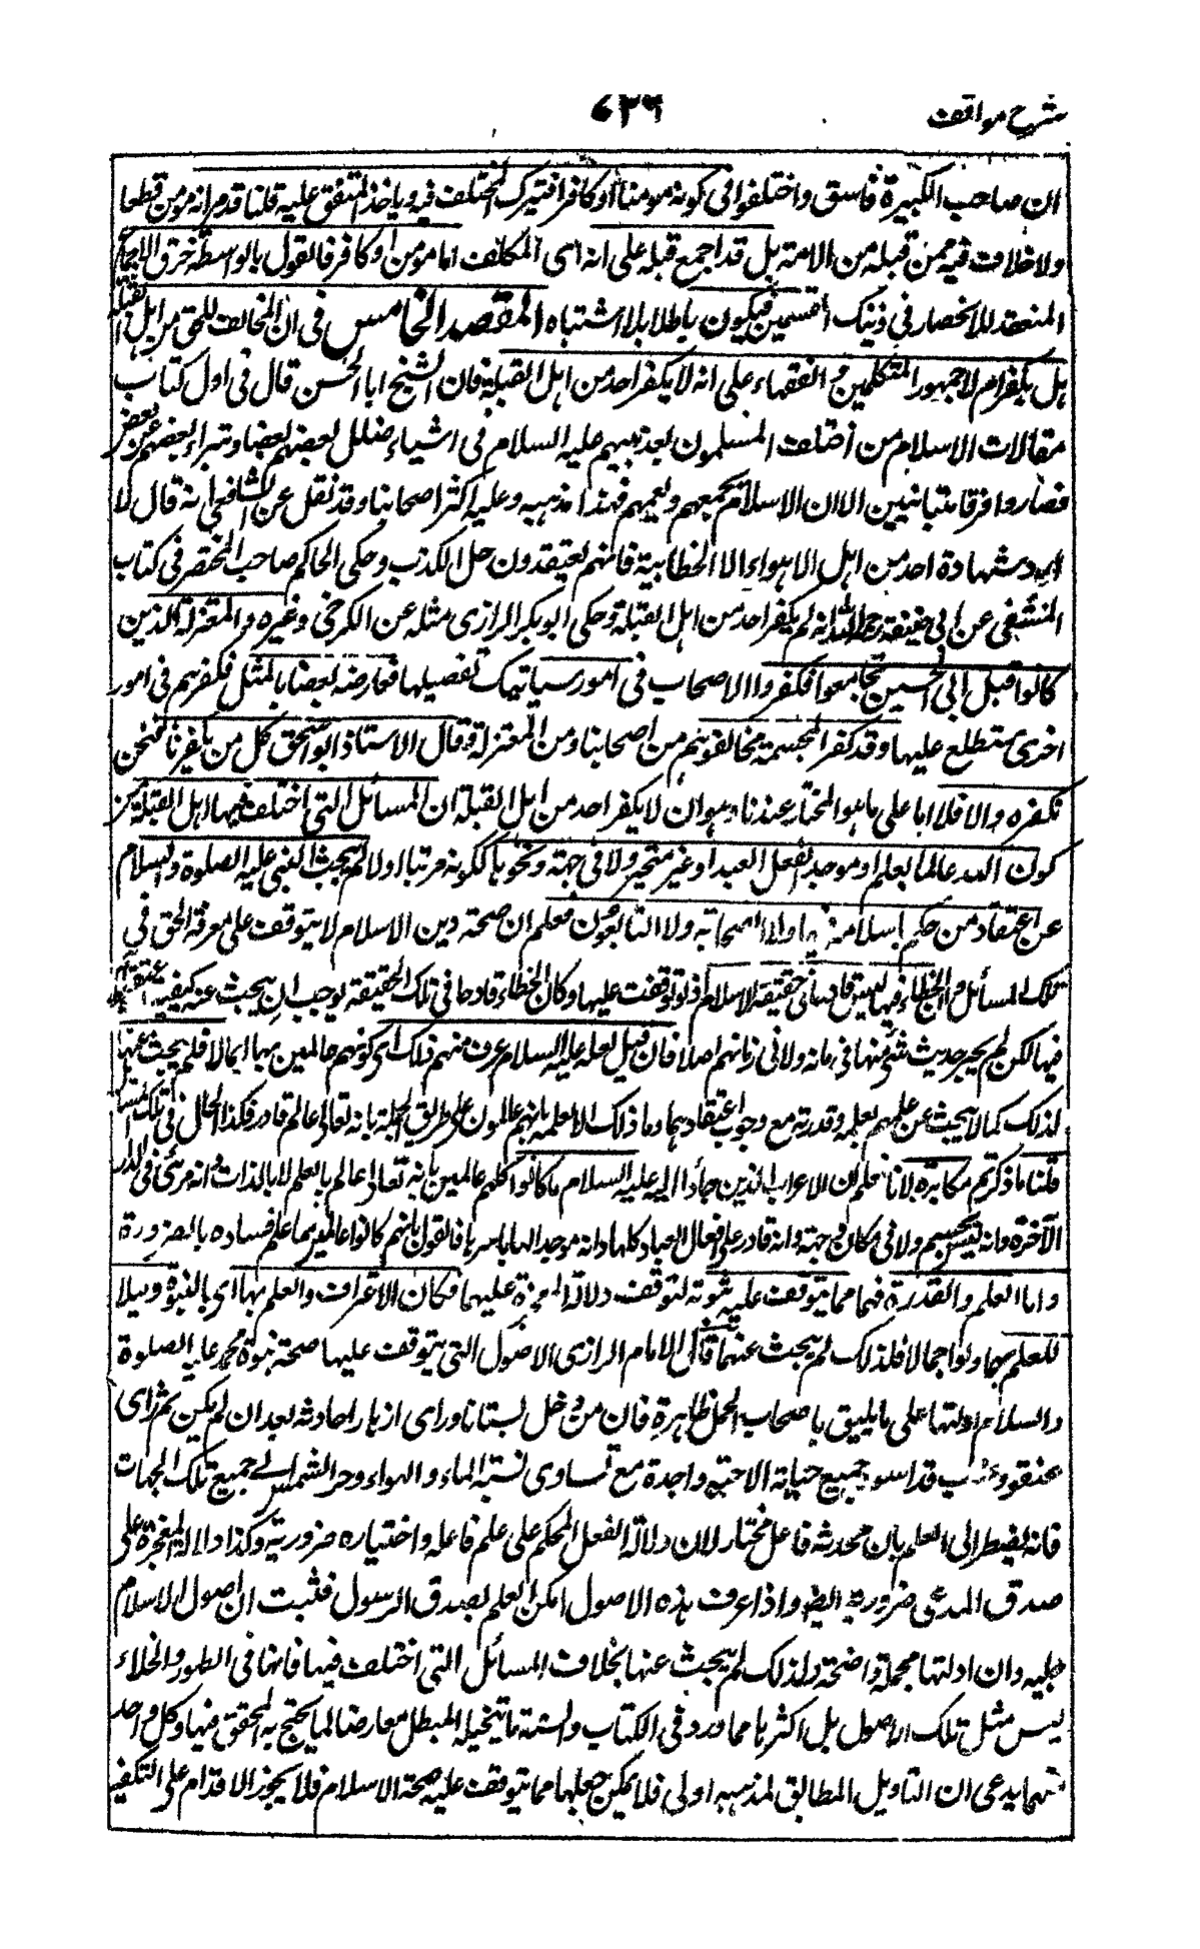 شرح مواقف ٧٢٦
ان صاحب الكبيرة فاسق واختلفوا في كونه مومنا او كافرا فنترك المختلف فيه وياخذ المتفق عليه قلنا قد مر انه مومن قطعا
ولا خلاف فيه ممن قبله من الامة بل قد اجمع قبله على انه اي المكلف اما مومن او كافر فالقول بالواسطة خرق الاجماع
المنعقد للانحصار في ذينك القسمين فيكون باطلا بلا اشتباه المقصد الخامس في ان المخالف للحق من اهل القبلة
هل يكفر ام لا جمهور المتكلمين والفقهاء على انه لا يكفر احد من اهل القبلة فان الشيخ ابا الحسن قال في اول كتاب
مقالات الاسلام من اختلف المسلمون بعد نبيهم عليه السلام في اشياء ضلل بعضهم بعضا وتبراء بعضهم عن بعض
فصاروا فرقا متباينين الا ان الاسلام يجمعهم ويعمهم فهذا مذهبه وعليه اكثر اصحابنا وقد نقل عن الشافعي انه قال لا
ارد شهادة احد من اهل الاهواء الا الخطابية فانهم يعتقدون حل الكذب وحكى الحاكم صاحب المختصر في كتاب
المنتقى عن ابي حنيفة رحمه الله انه لم يكفر احد من اهل القبلة وحكى ابو بكر الرازي مثله عن الكرخي وغيره والمعتزلة الذين
كانوا قبل ابي الحسين تحامعوا فكفروا الاصحاب في امور سياتيك تفصيلها فعارضه بعضنا بالمثل فكفرهم في امور
اخرى ستطلع عليها وقد كفر المجسمة مخالفوهم من اصحابنا ومن المعتزلة وقال الاستاذ ابو اسحق كل من يكفرنا فنحن
نكفره والا فلا لنا على ما هو المختار عندنا وهو ان لا يكفر احد من اهل القبلة ان المسائل التي اختلف فيها اهل القبلة من
كون الله عالما بعلم او موجد لفعل العبد او غير متحيز ولا في جهة ونحوها ككونه مرئيا اولا لم يبحث النبي عليه الصلوة والسلام
عن اعتقاد من حكم باسلامه فيها ولا الصحابة ولا التابعون فعلم ان صحة دين الاسلام لا يتوقف على معرفة الحق في
تلك المسائل وان الخطاء فيها ليس قادحا في حقيقة الاسلام اذ لو توقفت عليها وكان الخطاء قادحا في تلك الحقيقة لوجب ان يبحث عن كيفية اعتقادهم
فيها لكن لم يجر حديث شيء منها في زمانه ولا في زمانهم اصلا فان قيل لعله عليه السلام عرف منهم ذلك اي كونهم عالمين بها اجمالا فلم يبحث عنها
لذلك كما لم يبحث عن علمهم بعلمه وقدرته مع وجوب اعتقادهما وما ذلك الا لعلمه بانهم عالمون على طريق الجملة بانه تعالى عالم قادر فكذا الحال في تلك المسائل
قلنا ما ذكرتم مكابرة لانا نعلم ان الاعراب الذين جاؤا اليه عليه السلام ما كانوا كلهم عالمين بانه تعالى عالم بالعلم لا بالذات وانه مرئي في الدار
الآخرة وانه ليس بجسم ولا في مكان وجهة وانه قادر على افعال العباد كلها وانه موجد لها باسرها فالقول بانهم كانوا عالمين بها مما علم فساده بالضرورة
واما العلم والقدرة فهما مما يتوقف عليه ثبوته لتوقف دلالة المعجزة عليهما فكان الاعتراف والعلم بها اي بالنبوة دليلا
للعلم بهما ولو اجمالا فلذلك لم يبحث عنهما قال الامام الرازي الاصول التي يتوقف عليها صحة نبوة محمد عليه الصلوة
والسلام ادلتها على ما يليق باصحاب الجمل ظاهرة فان من دخل بستانا وراى ازهارا حادثة بعد ان لم يكن ثم راى
عنقود عنب قد اسود جميع حباته الا حبة واحدة مع تساوي نسبة الماء والهواء وحر الشمس الى جميع تلك الحبات
فانه يضطر الى العلم بان محدثه فاعل مختار لان دلالة الفعل المحكم على علم فاعله واختياره ضرورية وكذا دلالة المعجزة على
صدق المدعي ضرورية ايضا واذا عرفت هذه الاصول امكن العلم بصدق الرسول فثبت ان اصول الاسلام
جلية وان ادلتها مجملة واضحة ولذلك لم يبحث عنها بخلاف المسائل التي اختلف فيها فانها في الظهور والجلاء
ليس مثل تلك الاصول بل اكثرها مما ورد في الكتاب والسنة ما يتخيله المبطل معارضا لما يحتج به المحقق فيها وكل واحد
منهما يدعي ان التاويل المطابق لمذهبه اولى فلا يمكن جعلها مما يتوقف عليه صحة الاسلام فلا يجوز الاقدام على التكفير